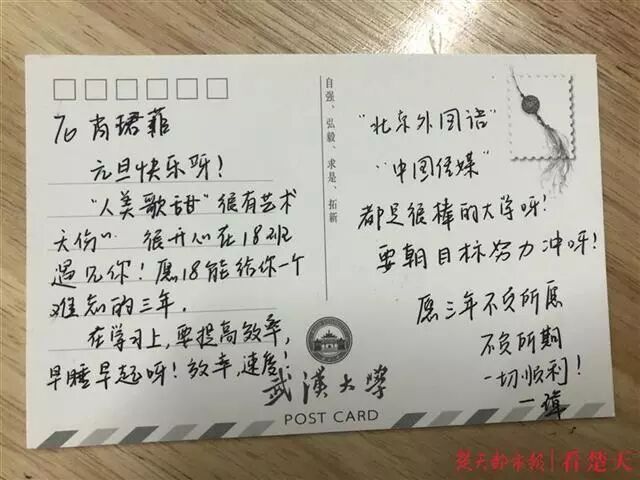 To 肖珺菲
元旦快乐呀!
"人美歌甜"很有艺术
天份!! 很开心在18班
遇见你!愿18能给你一个
难忘的三年.
在学习上,要提高效率,
早睡早起呀!效率,速度!
自强、弘毅、求是、拓新
"北京外国语"
"中国传媒"
都是很棒的大学呀!
要朝目标努力冲呀!
愿三年不负所愿
不负所期
一切顺利!
武漢大學
POST CARD
楚天都市报|看楚天